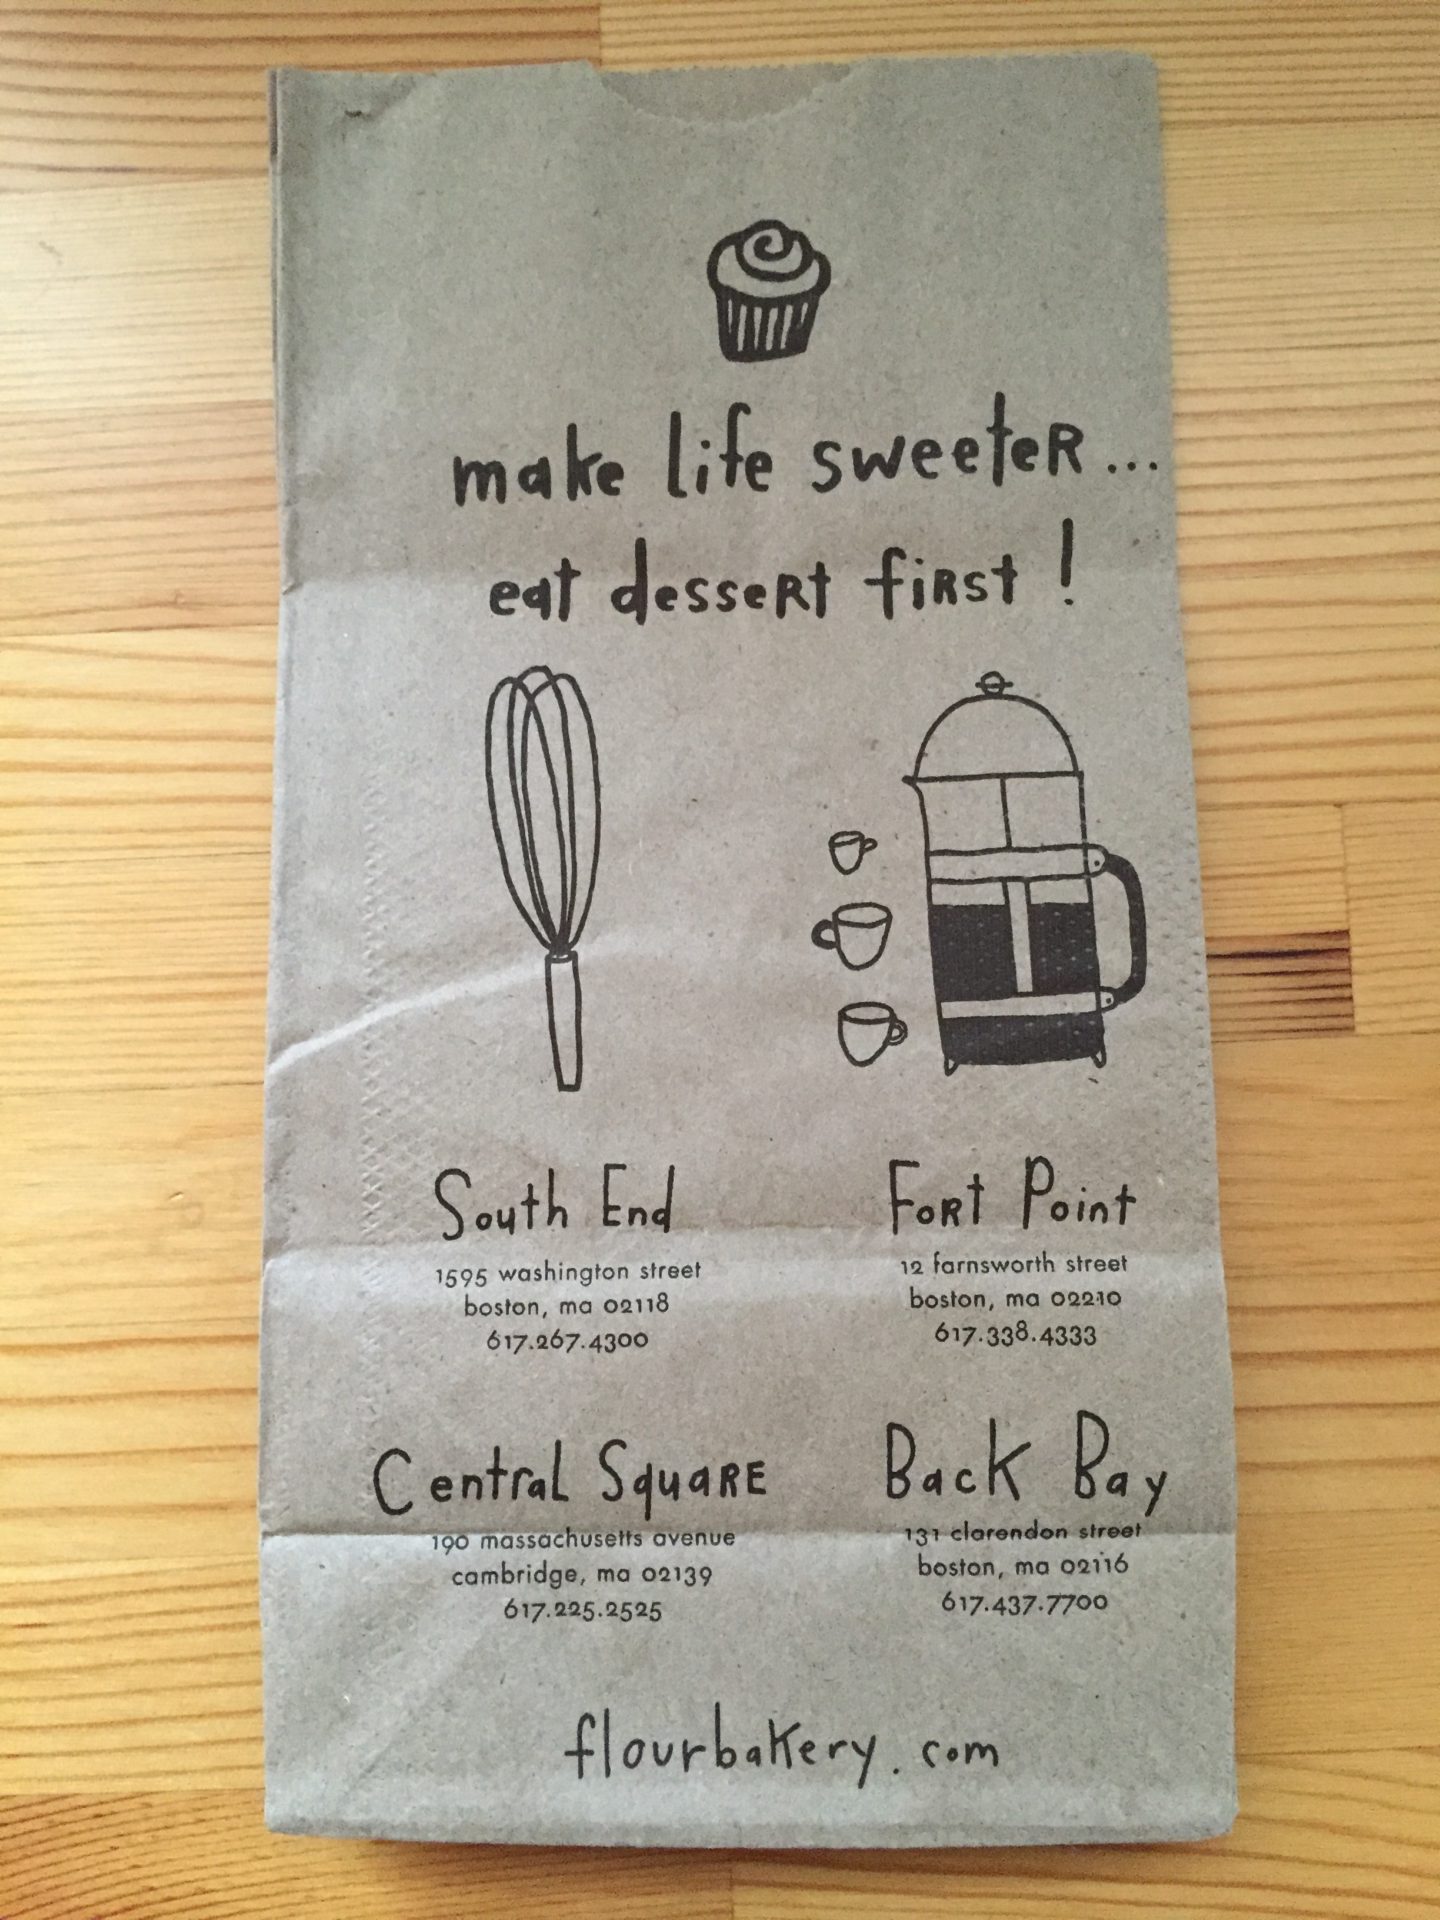 make life sweeter...
eat dessert first!
South End
1595 washington street
boston, ma 02118
617.267.4300
Fort Point
12 farnsworth street
boston, ma 02210
617.338.4333
Central Square
190 massachusetts avenue
cambridge, ma 02139
617.225.2525
Back Bay
131 clarendon street
boston, ma 02116
617.437.7700
flourbakery.com